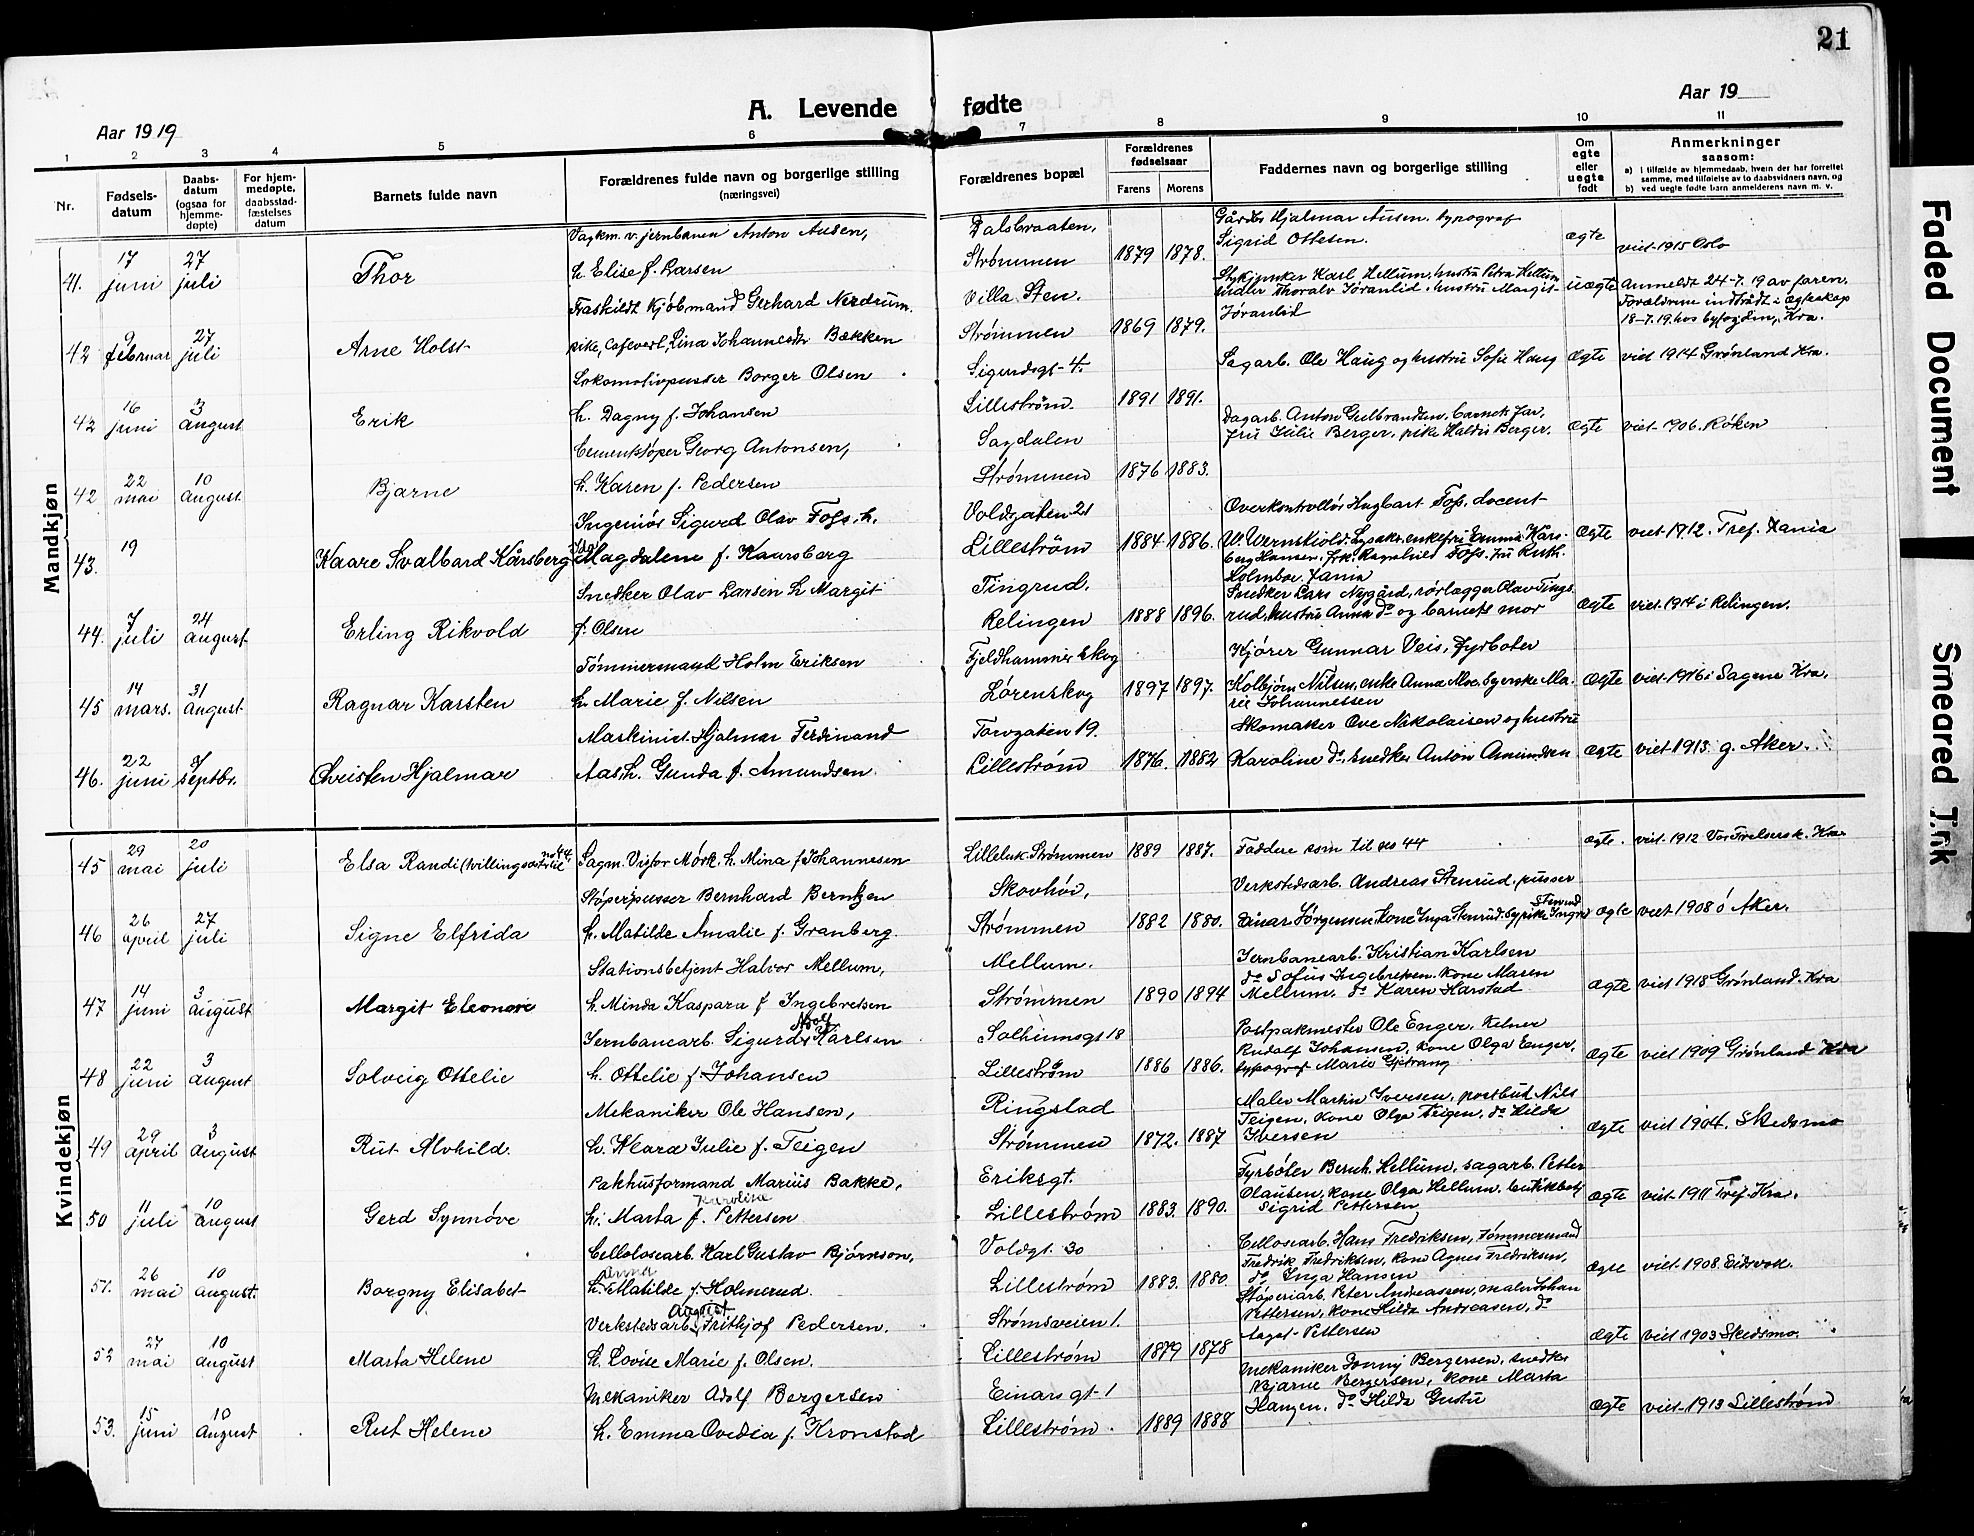 21
A. Levende fødte
Aar 1919
Aar 19
1 2 3 4 5 6 7 8 9 10 11
Nr.
Fødsels-
datum
Daabs-
datum
(ogsaa for
hjemme-
døpte)
For hjem-
medøpte,
daabsstad-
fæstelses
datum
Barnets fulde navn
Forældrenes fulde navn og borgerlige stilling
(næringsvei)
Forældrenes bopæl
Forældrenes
fødselsaar
Farens
Morens
Faddernes navn og borgerlige stilling
Om
egte
eller
uegte
født
Anmerkninger
saasom:
a) i tilfælde av hjemmedaab, hvem der har forrettet
samme, med tilføielse av to daabsvidners navn, og
b) ved uegte fødte barn anmelderens navn m. v.
Mandkjøn
41. 17 juni 27 juli Thor
Vagkm. v. jernbanen Anton Ausen,
h. Elise f. Larsen
Dalsbraaten,
Strømmen 1879 1878.
Gårdbr Hjalmar Ausen, typograf
Sigrid Ottesen.
ægte viet 1915 Oslo
42 9 februar 27 juli Arne Holst
Fraskildt Kjøbmand Gerhard Nerdrum.
pike, Cafévert, Lina Johannesdtr Bækken
Villa Sten.
Strømmen 1869 1879.
Stykjunker Karl Hellum, hustru Petra Hellum
sadler Thoralv Jøranlid, hustru Margit
Jøranlid
uægte Anmeldt 24-7.19 av faren.
Forældrene indtrådt i Ægteskap
18-7.19. hos byfogden, Kra.
42 16 juni 3 august Erik
Lokomotivpusser Borger Olsen
h. Dagny f. Johansen
Sigurdsgt 4.
Lillestrøm. 1891 1891.
Sagarb. Ole Haug og hustru Sofie Haug
ægte viet 1914 Grønland Kra.
42 22 mai 10 august Bjarne
Cementstøper Georg Antonsen,
h. Karen f. Pedersen
Sagdalen
Strømmen 1876 1883.
Dagarb. Anton Gulbrandsen, barnets far,
fru Julie Berger, pike Haldis Berger.
ægte viet 1906. Røken
43. 19 Kaare Svalbard Kårsberg
Ingeniør Sigurd Olav Foss, h.
Ida Magdalene f. Kaarsberg
Voldgaten 21
Lillestrøm 1884 1886.
Overkontrollør Hugbart Foss, docent
W. Wernskiold, Lysaker, enkefru Emma Kars-
berg Hansen, frk. Ragnhild Foss, fru Ruth
Holmboe, Xania
ægte viet 1912. Tref. Xania
44. 7 juli 24 august Erling Rikvold
Snedker Olav Larsen h Margit
f. Olsen
Tingrud.
Relingen 1888 1896.
Snedker Lars Nygård, rørlægger Olav Tings
rud, hustru Anna do og barnets mor
ægte viet 1914 i Relingen.
45 14 mars. 31 august Ragnar Karsten
Tømmermand Holm Eriksen
h. Marie f. Nilsen
Fjeldhammer skog
Lørenskog 1897 1897.
Kjører Gunnar Veis, fyrbøter
Kolbjørn Nilsen, enke Anna Moe, Syerske Ma-
rie Johannessen
ægte viet 1916 i Sagene Kra.
46. 22 juni 7 septbr. Christen Hjalmar
Maskinist Hjalmar Ferdinand
Aas, h. Gunda f. Amundsen
Torvgaten 19.
Lillestrøm 1876. 1882
Skomaker Ove Nikolaisen og hustru
Karoline do, snedker Anton Amundsen
ægte viet 1913. g. Aker.
Kvindekjøn
45 29 mai 20 juli Elsa Randi (tvillingsøster til no 44.
Sagm. Visfor Mørk. h. Mina f Johannesen
Lilleluk. Strømmen 1889 1887.
Faddere som til no 44
ægte. viet 1912 Vor Frelsersk. Kra
46 26 april 27 juli Signe Elfrida
Støperipusser Bernhard Berntzen
h. Matilde Amalie f. Granberg.
Skovhøi,
Strømmen 1882 1880.
Verkstedsarb. Andreas Stenrud, pusser
Einar Jørgensen, kone Inga Stenrud, sypike Ingrid Stenrud
ægte viet 1908 Ø Aker.
47 14 juni 3 august Margit Eleonore
Stationsbetjent Halvor Mellum,
h. Minda Kaspara f Ingebretsen
Mellum.
Strømmen 1890 1894
Jernbanearb. Kristian Karlsen
do Sofus Ingebretsen, kone Maren
Mellum. do Karen Harstad
ægte viet 1918 Grønland. Kra
48 22 juni 3 august Solveig Ottelie
Jernbanearb. Sigurd Adolf Karlsen
h. Ottelie f Johansen
Solheimsgt 18
Lillestrøm 1886 1886.
Postpakmester Ole Enger, Kelner
Rudolf Johansen, kone Olga Enger,
typograf Marie Gjetrang
ægte viet 1909 Grønland Kra
49 29 april 3 august Rut Alvhild.
Mekaniker Ole Hansen,
h. Klara Julie f. Teigen
Ringstad
Strømmen 1872. 1887
Maler Martin Iversen, postbud Nils
Teigen, kone Olga Teigen, do Hilda
Iversen
ægte viet 1904. Skedsmo
50 11 juli 10 august Gerd Synnøve
Pakhusformand Marius Bakke,
h. Marta Karoline f. Pettersen
Eriksgt.
Lillestrøm 1883. 1890.
Fyrbøter Bernh. Hellum, sagarb. Petter
Olausen, kone Olga Hellum, butikbetj
Sigrid Pettersen
ægte viet 1911 Tref. Kra.
51. 26 mai 10 august. Borgny Elisabet
Cellolosearb. Karl Gustav Bjørnson,
h. Anna Matilde f. Holmerud.
Voldgt. 30
Lillestrøm 1883. 1880.
Cellosearb. Hans Fredriksen, Tømmermand
Fredrik Fredriksen, kone Agnes Fredriksen,
do Inga Hansen
ægte viet 1908. Eidsvok.
52 27 mai 10 august Marta Helene
Verkstedsarb. August Frithjof Pedersen.
h. Lovise Marie f. Olsen.
Strømsveien 1.
Lillestrøm 1879 1878
Støperiarb. Peter Andreassen, maler Johan
Pettersen, kone Hilda Andreasen, do
Aagot Pettersen
ægte viet 1903 Skedsmo.
53. 15 juni 10 august Rut Helene
Mekaniker Adolf Bergersen
h. Emma Ovedia f. Kronstad
Einarsgt 1
Lillestrøm. 1889 1888
Mekaniker Jonny Bergersen, snedker
Bjarne Bergersen, kone Marta
Hangen, do Hilda Gustu
ægte viet 1913 Lillestrøm
Faded Document
Smeared Ink